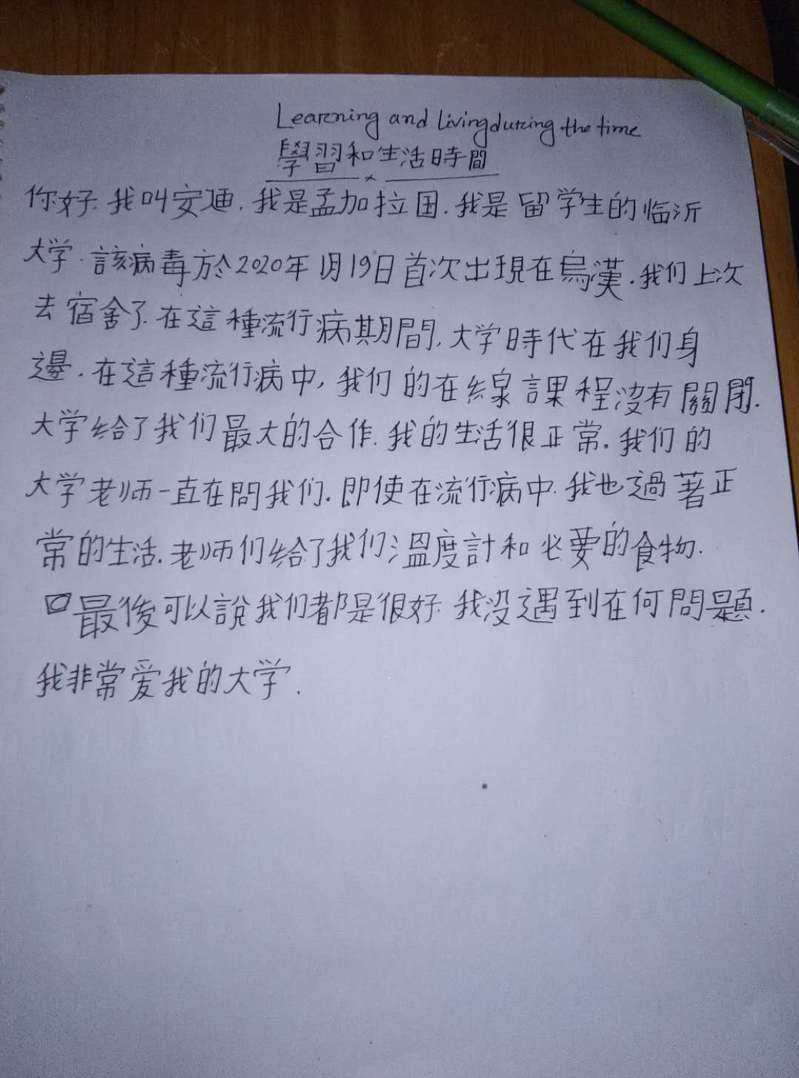 Learning and Living during the time
學習和生活時間
你好.我叫安迪.我是孟加拉国.我是留学生的临沂
大学.該病毒於2020年1月19日首次出現在烏漢.我们上次
去宿舍了.在這種流行病期間,大学時代在我们身
邊.在這種流行病中,我们的在線課程沒有關閉.
大学给了我们最大的合作.我的生活很正常.我们的
大学老师一直在問我们.即使在流行病中.我也過著正
常的生活.老师们给了我们溫度計和必要的食物.
最後可以說我们都是很好.我没遇到在何問題.
我非常爱我的大学.